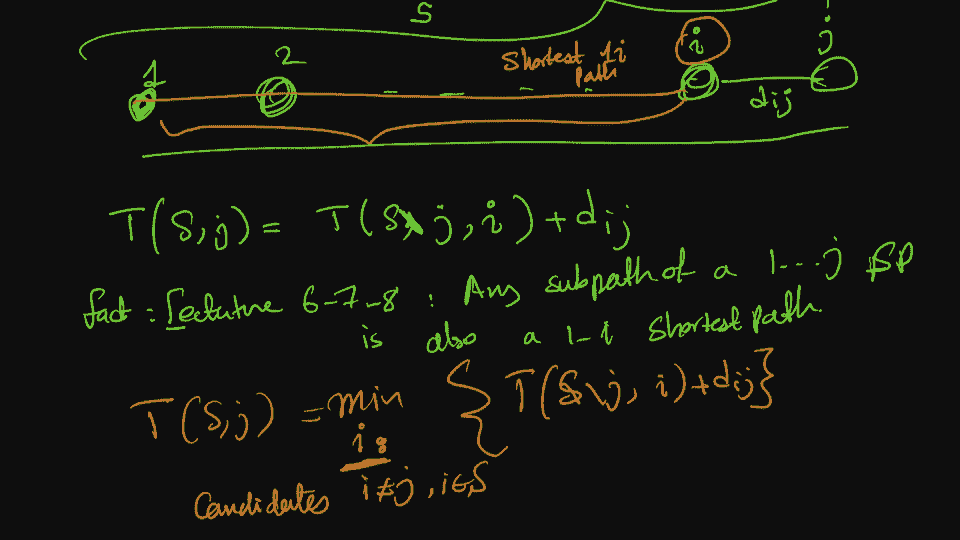 S
1 2 Shortest 1i path i j
dij
T(S,j) = T(S\j, i) + dij
fact : Lectutre 6-7-8 : Any subpath of a 1---j SP
is also a 1-i shortest path.
T(S,j) = min { T(S\j, i) + dij }
i :
Candidates i≠j, i∈S